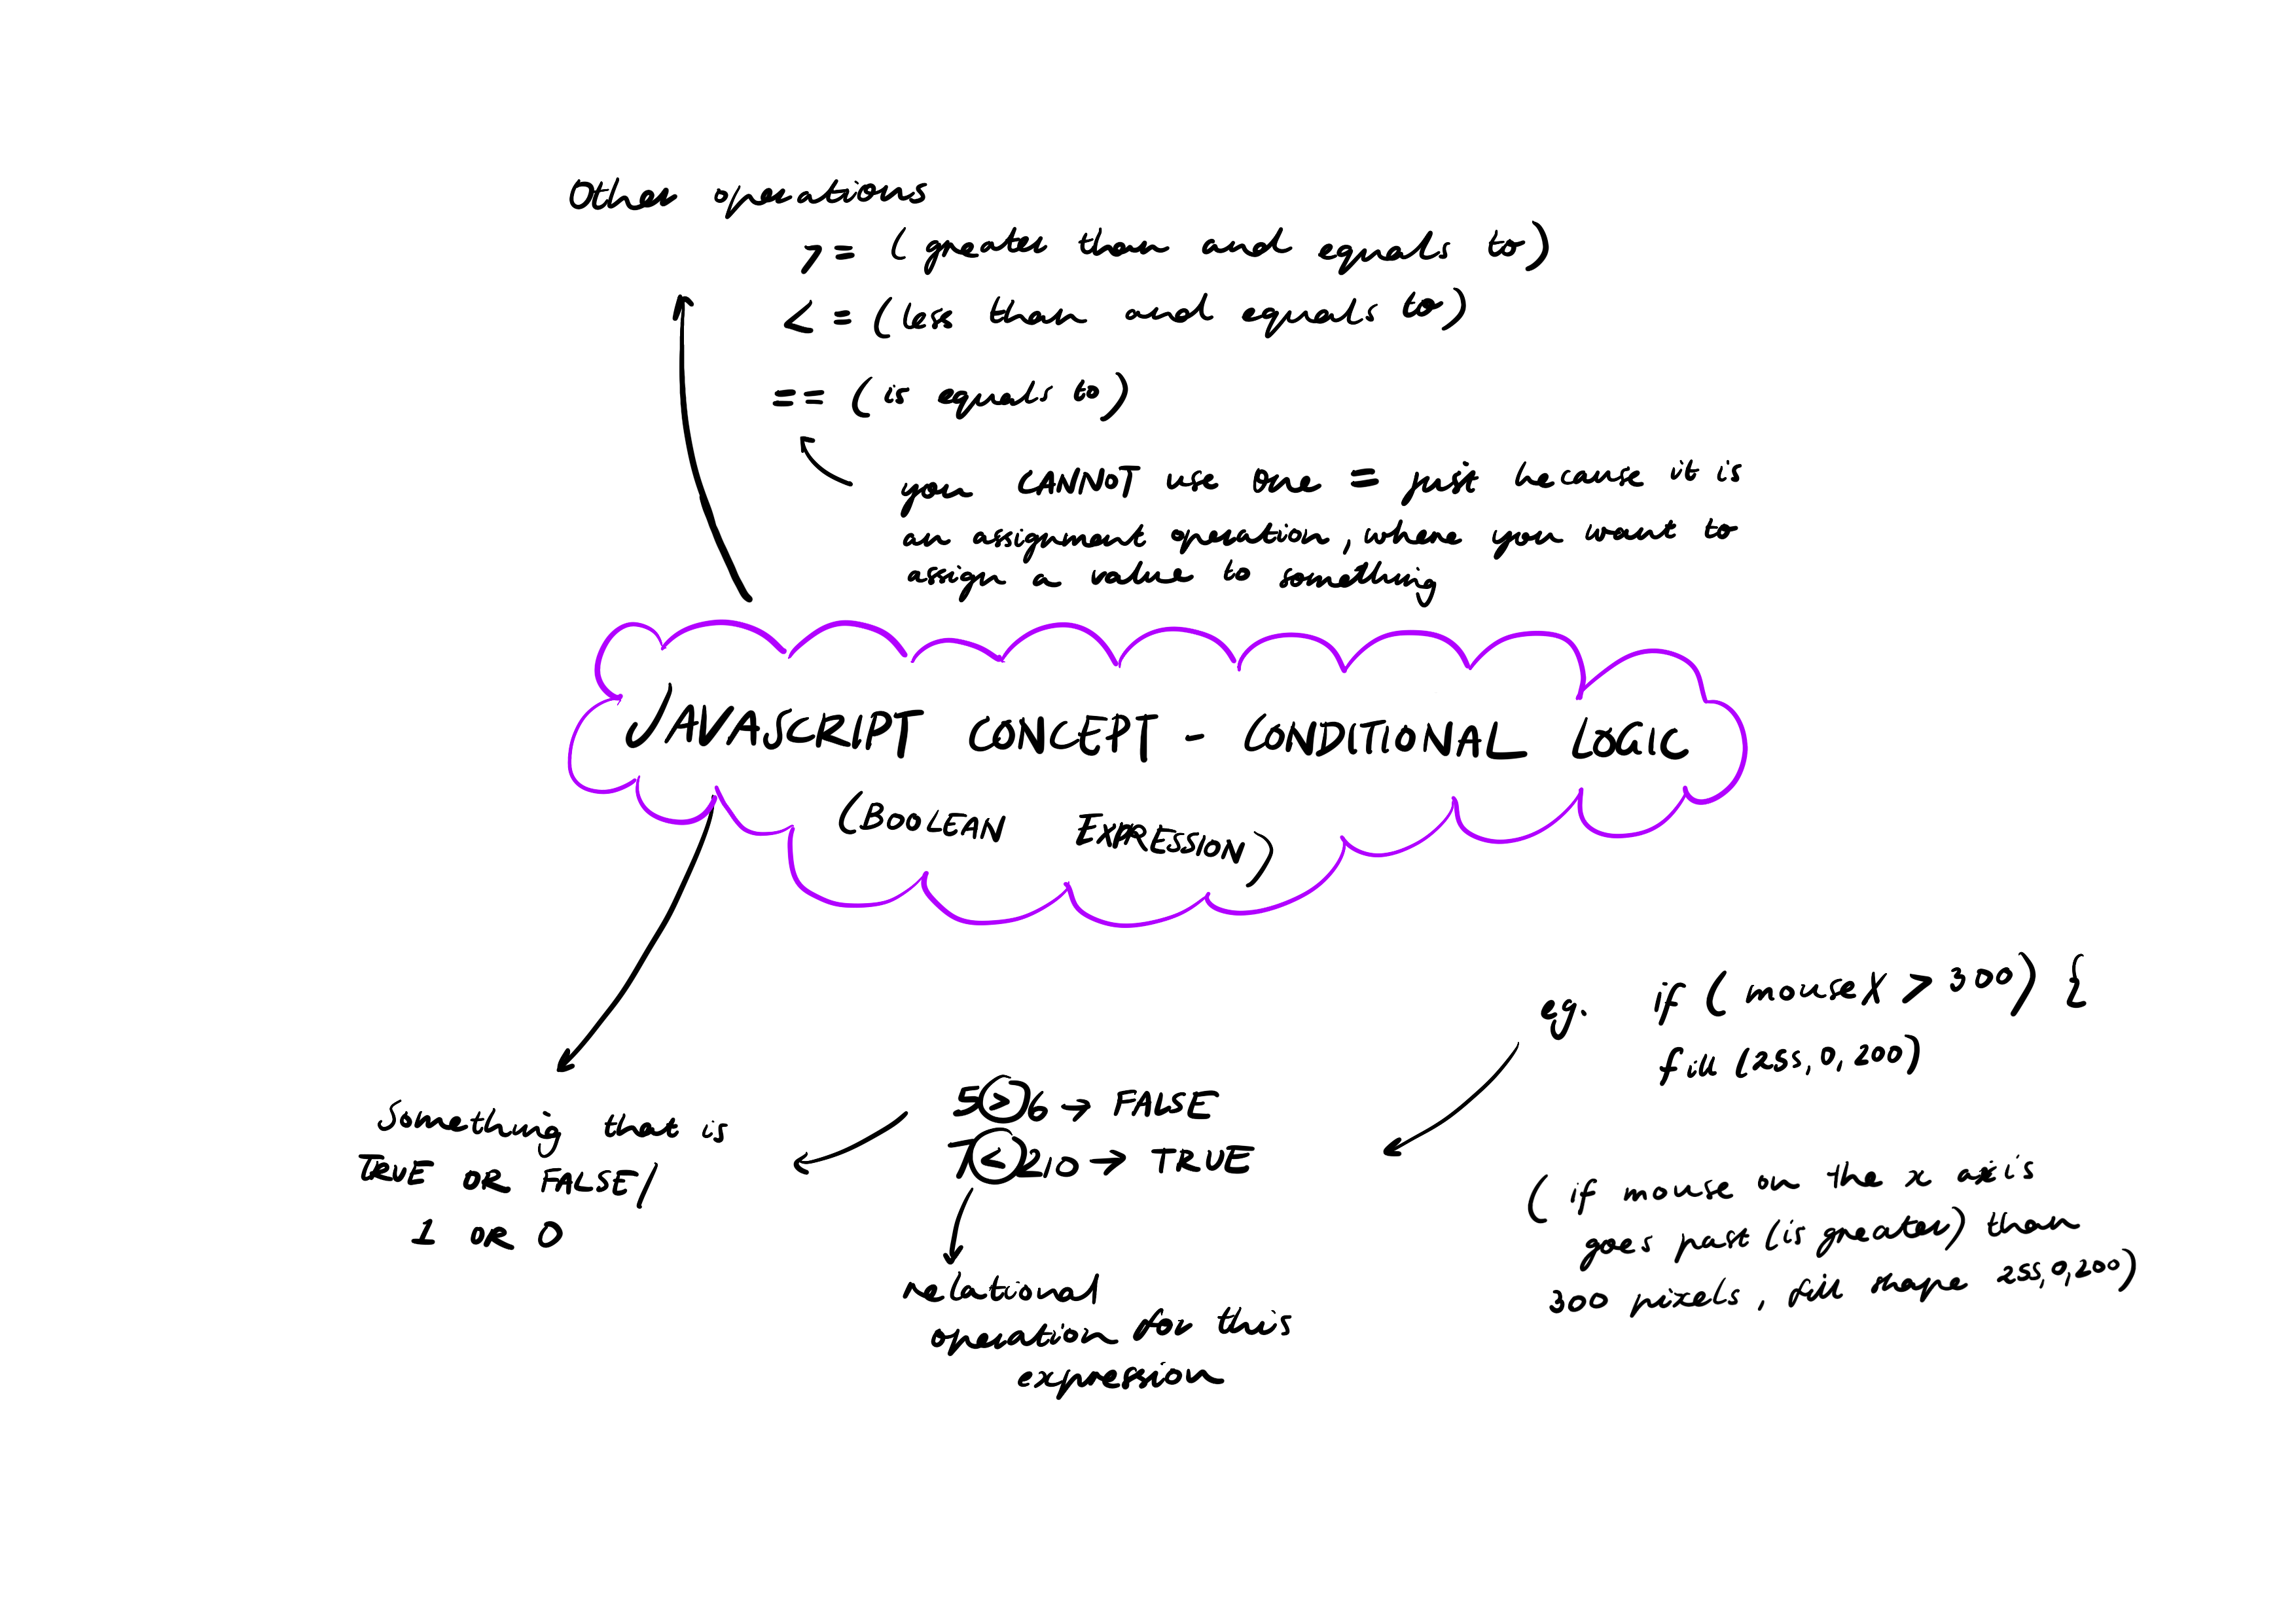 Other operations
>= (greater than and equals to)
<= (less than and equals to)
== (is equals to)
you CANNOT use one = just because it is
an assignment operation, where you want to
assign a value to something
JAVASCRIPT CONCEPT - CONDITIONAL LOGIC
(BOOLEAN EXPRESSION)
Something that is
TRUE OR FALSE/
1 OR 0
5 > 6 → FALSE
7 < 210 → TRUE
relational
operation for this
expression
eg. if (mouseX > 300) {
fill (255, 0, 200)
(if mouse on the x axis
goes past (is greater) than
300 pixels, fill shape 255,0,200)